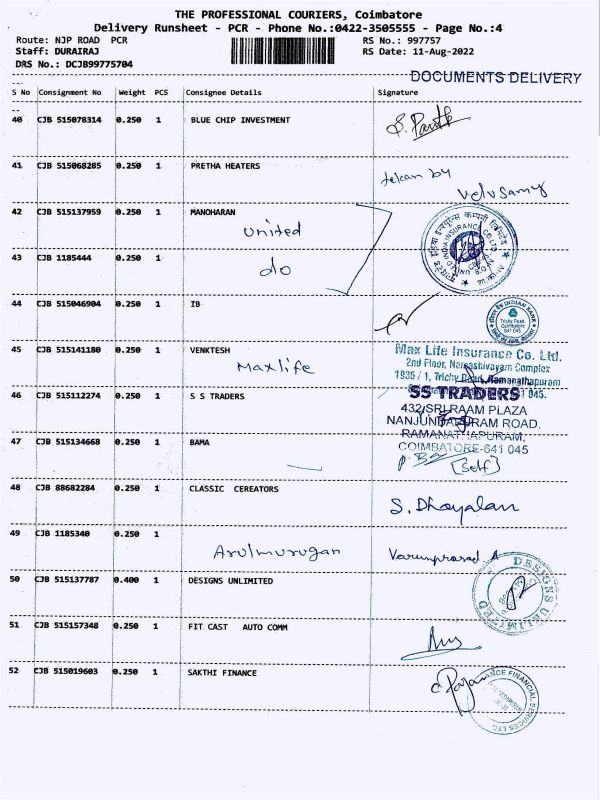 THE PROFESSIONAL COURIERS, Coimbatore
Delivery Runsheet - PCR - Phone No.:0422-3505555 - Page No.:4
Route: NJP ROAD PCR
RS No.: 997757
Staff: DURAIRAJ
RS Date: 11-Aug-2022
DRS No.: DCJB99775704
DOCUMENTS DELIVERY
S No Consignment No Weight PCS Consignee Details Signature
40 CJB 515078314 0.250 1 BLUE CHIP INVESTMENT
41 CJB 515068285 0.250 1 PRETHA HEATERS
taken by
Velusamy
42 CJB 515137959 0.250 1 MANOHARAN
United
43 CJB 1185444 0.250 1
do
44 CJB 515046904 0.250 1 IB
INDIAN BANK
Trichy Road,
Coimbatore
641 045
45 CJB 515141180 0.250 1 VENKTESH
Maxlife
Max Life Insurance Co. Ltd.
2nd Floor, Namashivayam Complex
1835 / 1, Trichy Road, Ramanathapuram
641 045.
46 CJB 515112274 0.250 1 S S TRADERS
SS TRADERS
432, SRI RAAM PLAZA
NANJUNDAPURAM ROAD.
RAMANATHAPURAM,
COIMBATORE-641 045
47 CJB 515134668 0.250 1 BAMA
[Self]
48 CJB 88682284 0.250 1 CLASSIC CEREATORS
S. Dhayalan
49 CJB 1185340 0.250 1
Arulmurugan
Varunprasad A
50 CJB 515137787 0.400 1 DESIGNS UNLIMITED
DESIGNS UNLIMITED
51 CJB 515157348 0.250 1 FIT CAST AUTO COMM
52 CJB 515019603 0.250 1 SAKTHI FINANCE